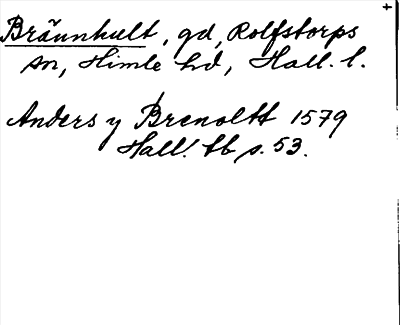 +
Bräunhult, gd, Rolfstorps
sn, Himle hd, Hall. l.
Anders y Brenoltt 1579
Hall. tb s. 53.